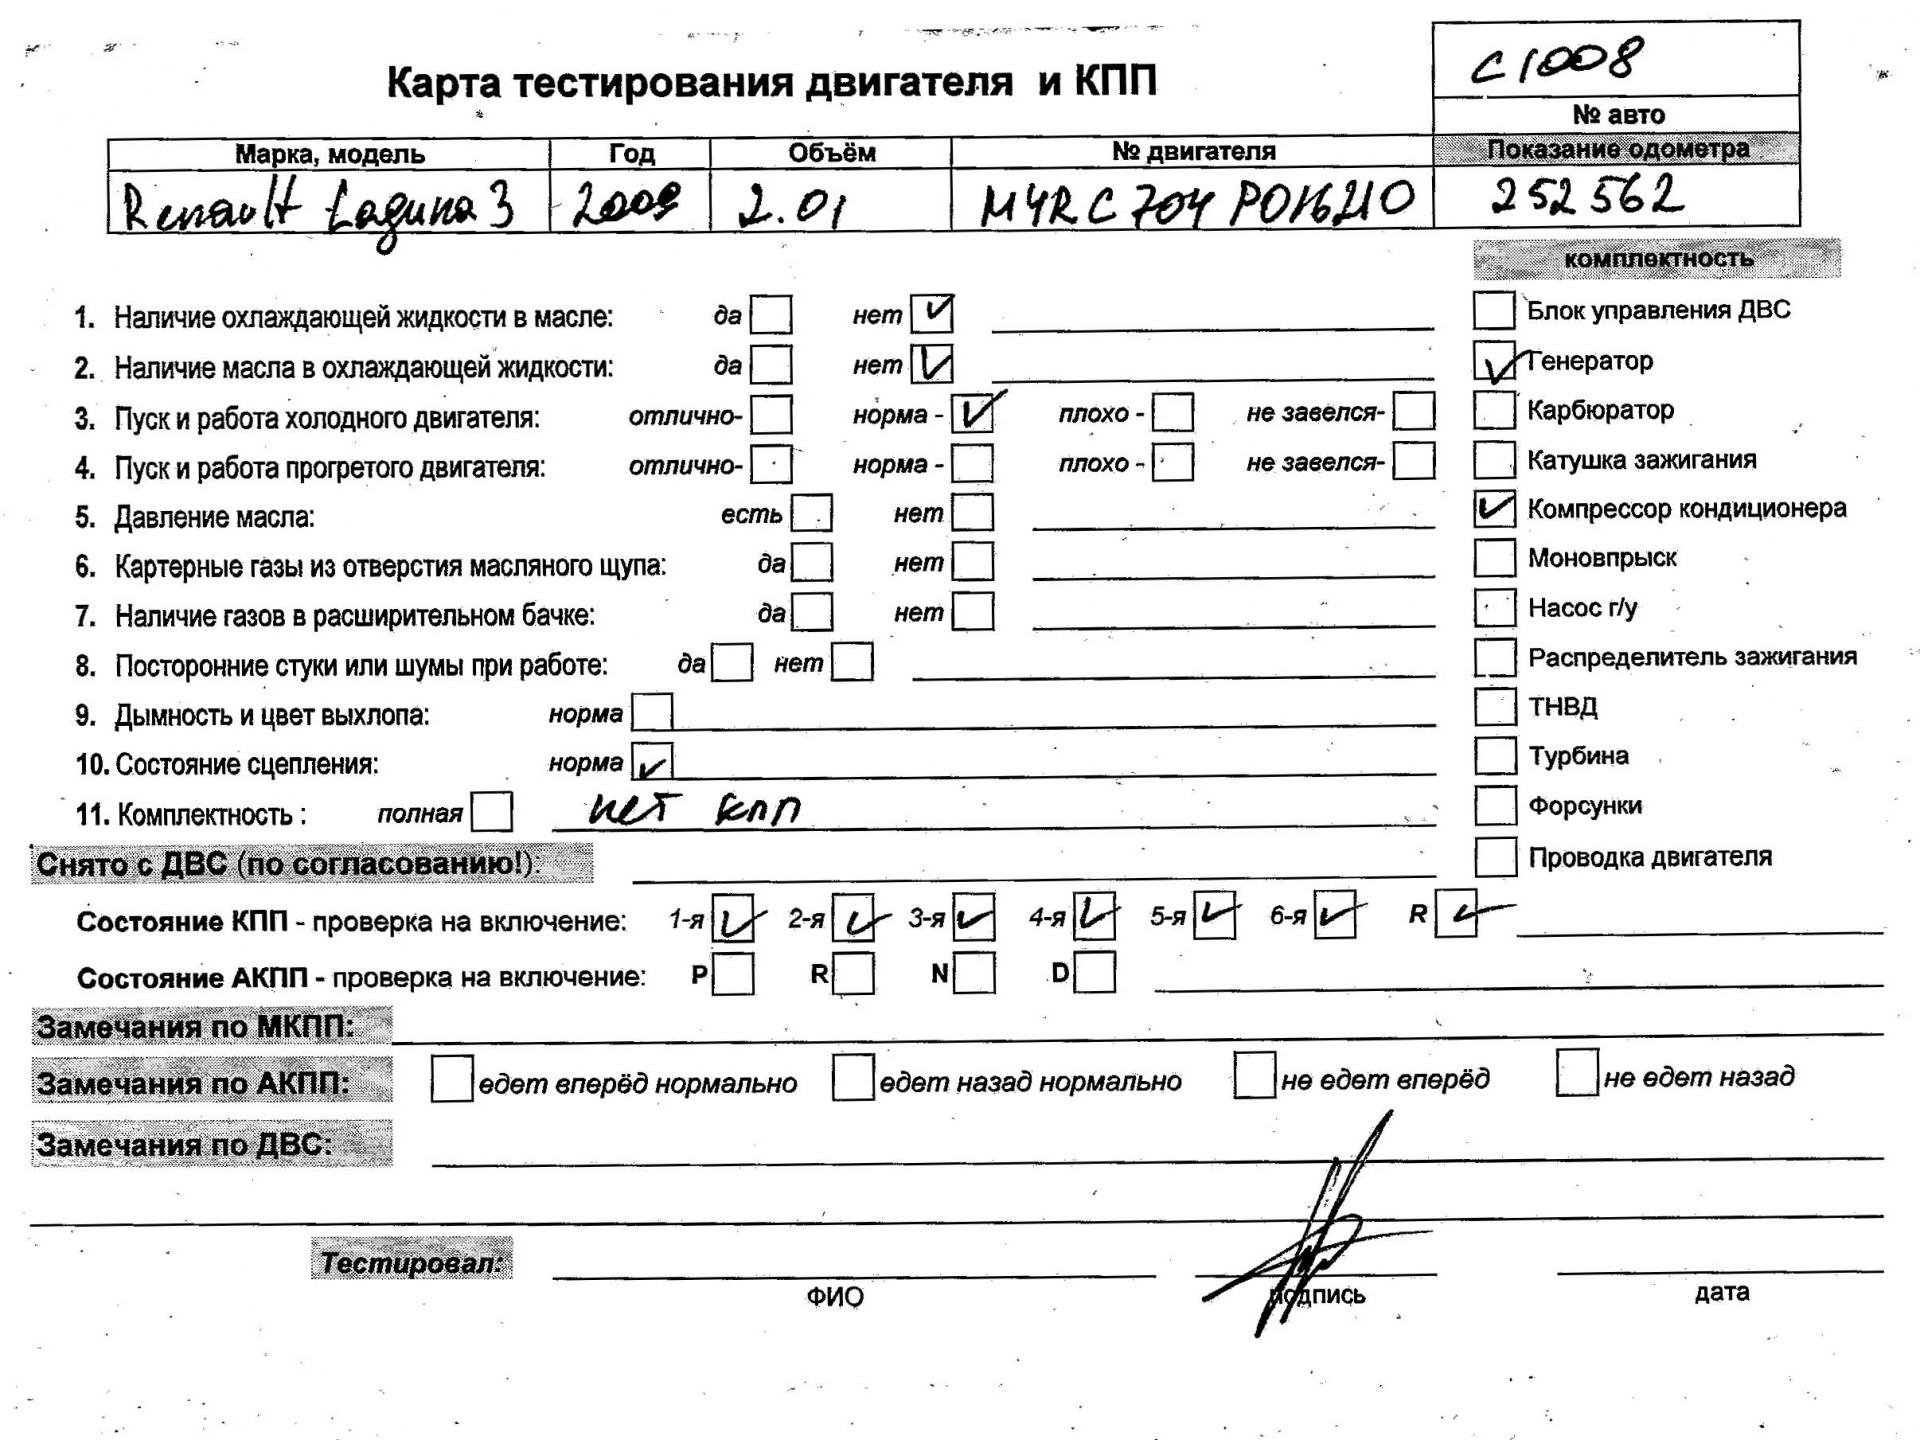 C1008
Карта тестирования двигателя и КПП
№ авто
Марка, модель Год Объём № двигателя Показание одометра
Renault Laguna 3 2009 2.0i M4RC704 P016210 252562
комплектность
1. Наличие охлаждающей жидкости в масле: да нет ✓ Блок управления ДВС
2. Наличие масла в охлаждающей жидкости: да нет ✓ ✓ Генератор
3. Пуск и работа холодного двигателя: отлично- норма - ✓ плохо - не завелся- Карбюратор
4. Пуск и работа прогретого двигателя: отлично- норма - плохо - не завелся- Катушка зажигания
5. Давление масла: есть нет ✓ Компрессор кондиционера
6. Картерные газы из отверстия масляного щупа: да нет Моновпрыск
7. Наличие газов в расширительном бачке: да нет Насос г/у
8. Посторонние стуки или шумы при работе: да нет Распределитель зажигания
9. Дымность и цвет выхлопа: норма ТНВД
10. Состояние сцепления: норма ✓ Турбина
11. Комплектность : полная нет кпп Форсунки
Снято с ДВС (по согласованию!): Проводка двигателя
Состояние КПП - проверка на включение: 1-я ✓ 2-я ✓ 3-я ✓ 4-я ✓ 5-я ✓ 6-я ✓ R ✓
Состояние АКПП - проверка на включение: P R N D
Замечания по МКПП:
Замечания по АКПП: едет вперёд нормально едет назад нормально не едет вперёд не едет назад
Замечания по ДВС:
Тестировал:
ФИО подпись дата